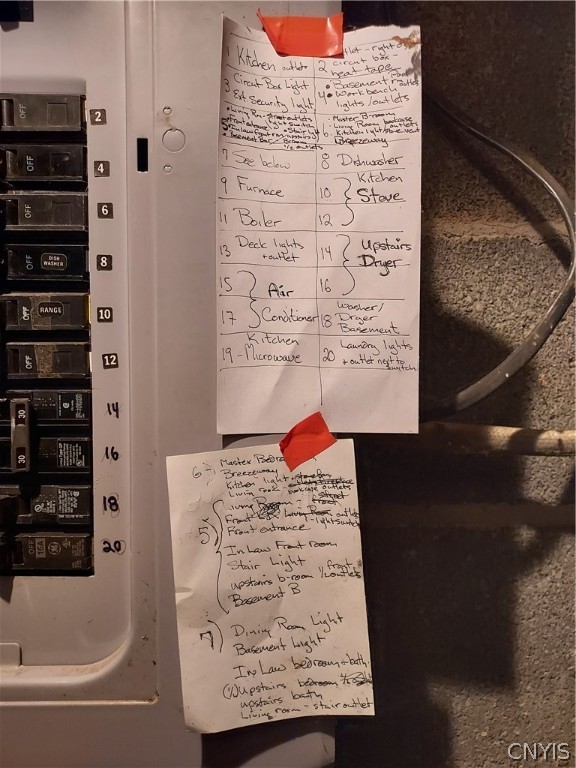 OFF
2
OFF
4
OFF
6
OFF DISH WASHER
8
OFF RANGE
10
OFF
12
14
30
30
16
18
OFF
20
1 Kitchen outlet
2 outlet - right of
circuit box -
heat tape
3 Circuit Box Light
Ext Security light
4 • Basement
• Workbench
lights/outlets
5
6 • Master B-room
Living Room bookcase outlets
Kitchen light
Breezeway
7 See below
8 Dishwasher
9 Furnace
10 Kitchen
Stove
11 Boiler
12
13 Deck lights
+ outlet
14 Upstairs
Dryer
15 Air
16
17 Conditioner
18 Washer/
Dryer
Basement
19 - Kitchen
Microwave
20 Laundry lights
+ outlet next to
switch
6 Master Bedroom
Breezeway
Kitchen light
Living room - bookcase outlets
5 Living Room -
Front outlets
Front entrance - lightswitch
In Law Front room
Stair Light
upstairs b-room 1/2 front outlets
Basement B
7 Dining Room Light
Basement Light
In Law bedroom + bath
(1/2) Upstairs bedroom
upstairs bath
Living room - stair outlet
CNYIS